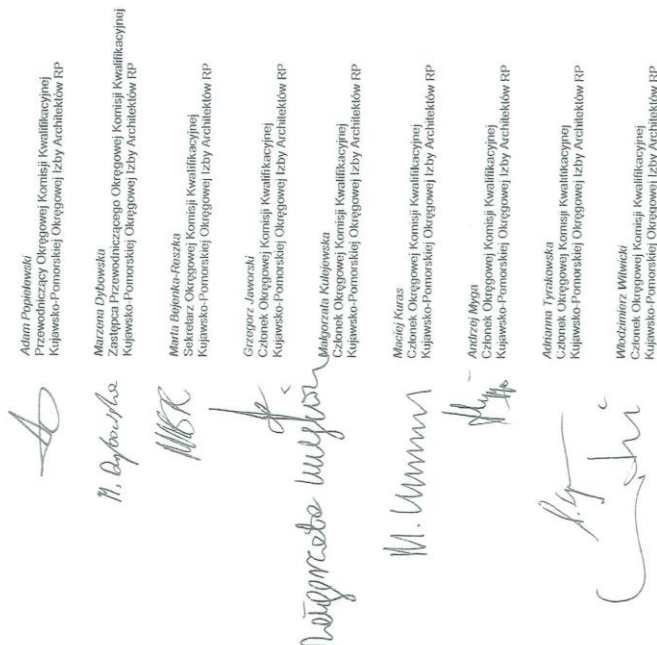 Adam Popielewski
Przewodniczący Okręgowej Komisji Kwalifikacyjnej
Kujawsko-Pomorskiej Okręgowej Izby Architektów RP
M. Dybowska
Marzena Dybowska
Zastępca Przewodniczącego Okręgowej Komisji Kwalifikacyjnej
Kujawsko-Pomorskiej Okręgowej Izby Architektów RP
MBR
Marta Bejenka-Reszka
Sekretarz Okręgowej Komisji Kwalifikacyjnej
Kujawsko-Pomorskiej Okręgowej Izby Architektów RP
Grzegorz Jaworski
Członek Okręgowej Komisji Kwalifikacyjnej
Kujawsko-Pomorskiej Okręgowej Izby Architektów RP
Małgorzata
Małgorzata Kulejewska
Członek Okręgowej Komisji Kwalifikacyjnej
Kujawsko-Pomorskiej Okręgowej Izby Architektów RP
M.
Maciej Kuras
Członek Okręgowej Komisji Kwalifikacyjnej
Kujawsko-Pomorskiej Okręgowej Izby Architektów RP
Andrzej Myga
Członek Okręgowej Komisji Kwalifikacyjnej
Kujawsko-Pomorskiej Okręgowej Izby Architektów RP
Adrianna Tyrakowska
Członek Okręgowej Komisji Kwalifikacyjnej
Kujawsko-Pomorskiej Okręgowej Izby Architektów RP
Włodzimierz Witwicki
Członek Okręgowej Komisji Kwalifikacyjnej
Kujawsko-Pomorskiej Okręgowej Izby Architektów RP